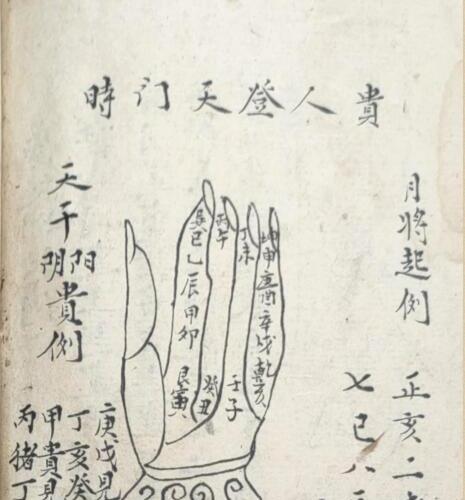 貴人登天门時
月將起例
正亥二
七巳八
坤申庚酉辛戌乾亥
丁未
丙午
巽巳乙辰甲卯艮寅
癸丑
壬子
天干阴阳貴例
庚戊見
丁亥癸
甲貴見
丙猪丁